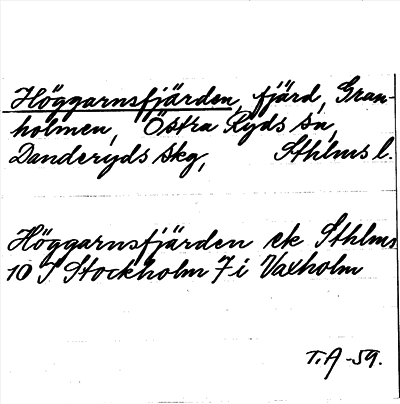 Höggarnsfjärden, fjärd, Gran-
holmen, Östra Ryds sn,
Danderyds skg, Sthlms l.
Höggarnsfjärden ek Sthlms
10 I Stockholm 7 i Vaxholm
T.A -59.